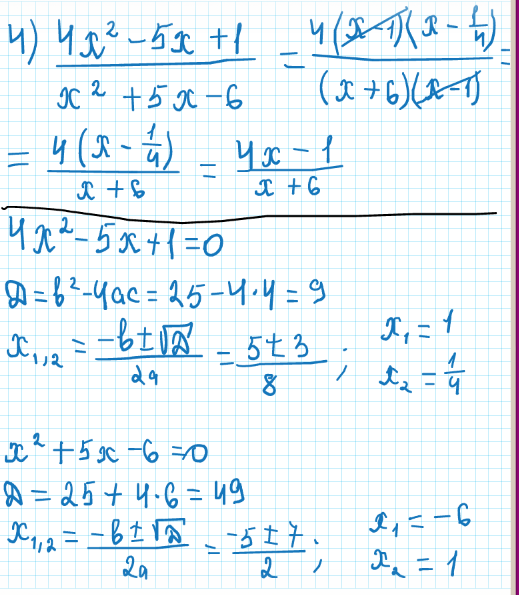 4) (4x² − 5x + 1)/(x² + 5x − 6) = (4(x − 1)(x − 1/4))/((x + 6)(x − 1)) =
= (4(x − 1/4))/(x + 6) = (4x − 1)/(x + 6)
4x² − 5x + 1 = 0
D = b² − 4ac = 25 − 4·4 = 9
x₁,₂ = (−b ± √D)/(2a) = (5 ± 3)/8 ; x₁ = 1
x₂ = 1/4
x² + 5x − 6 = 0
D = 25 + 4·6 = 49
x₁,₂ = (−b ± √D)/(2a) = (−5 ± 7)/2 ; x₁ = −6
x₂ = 1